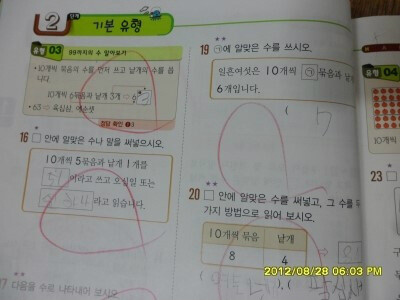 2 단계 기본 유형
유형 03 99까지의 수 알아보기
• 10개씩 묶음의 수를 먼저 쓰고 낱개의 수를 씁
니다.
10개씩 6묶음과 낱개 3개
• 63 육십삼, 예순셋
정답 확인
16 □ 안에 알맞은 수나 말을 써넣으시오.
10개씩 5묶음과 낱개 1개를
51 이라고 쓰고 오십일 또는
라고 읽습니다.
17 다음을 수로 나타내어 보시오.
19 ㉠에 알맞은 수를 쓰시오.
일흔여섯은 10개씩 ㉠ 묶음과 낱개
6개입니다.
7
20 □ 안에 알맞은 수를 써넣고, 그 수를 두
가지 방법으로 읽어 보시오.
10개씩 묶음 낱개
8 4
유형 04
10개씩
23 □
2012/08/28 06:03 PM